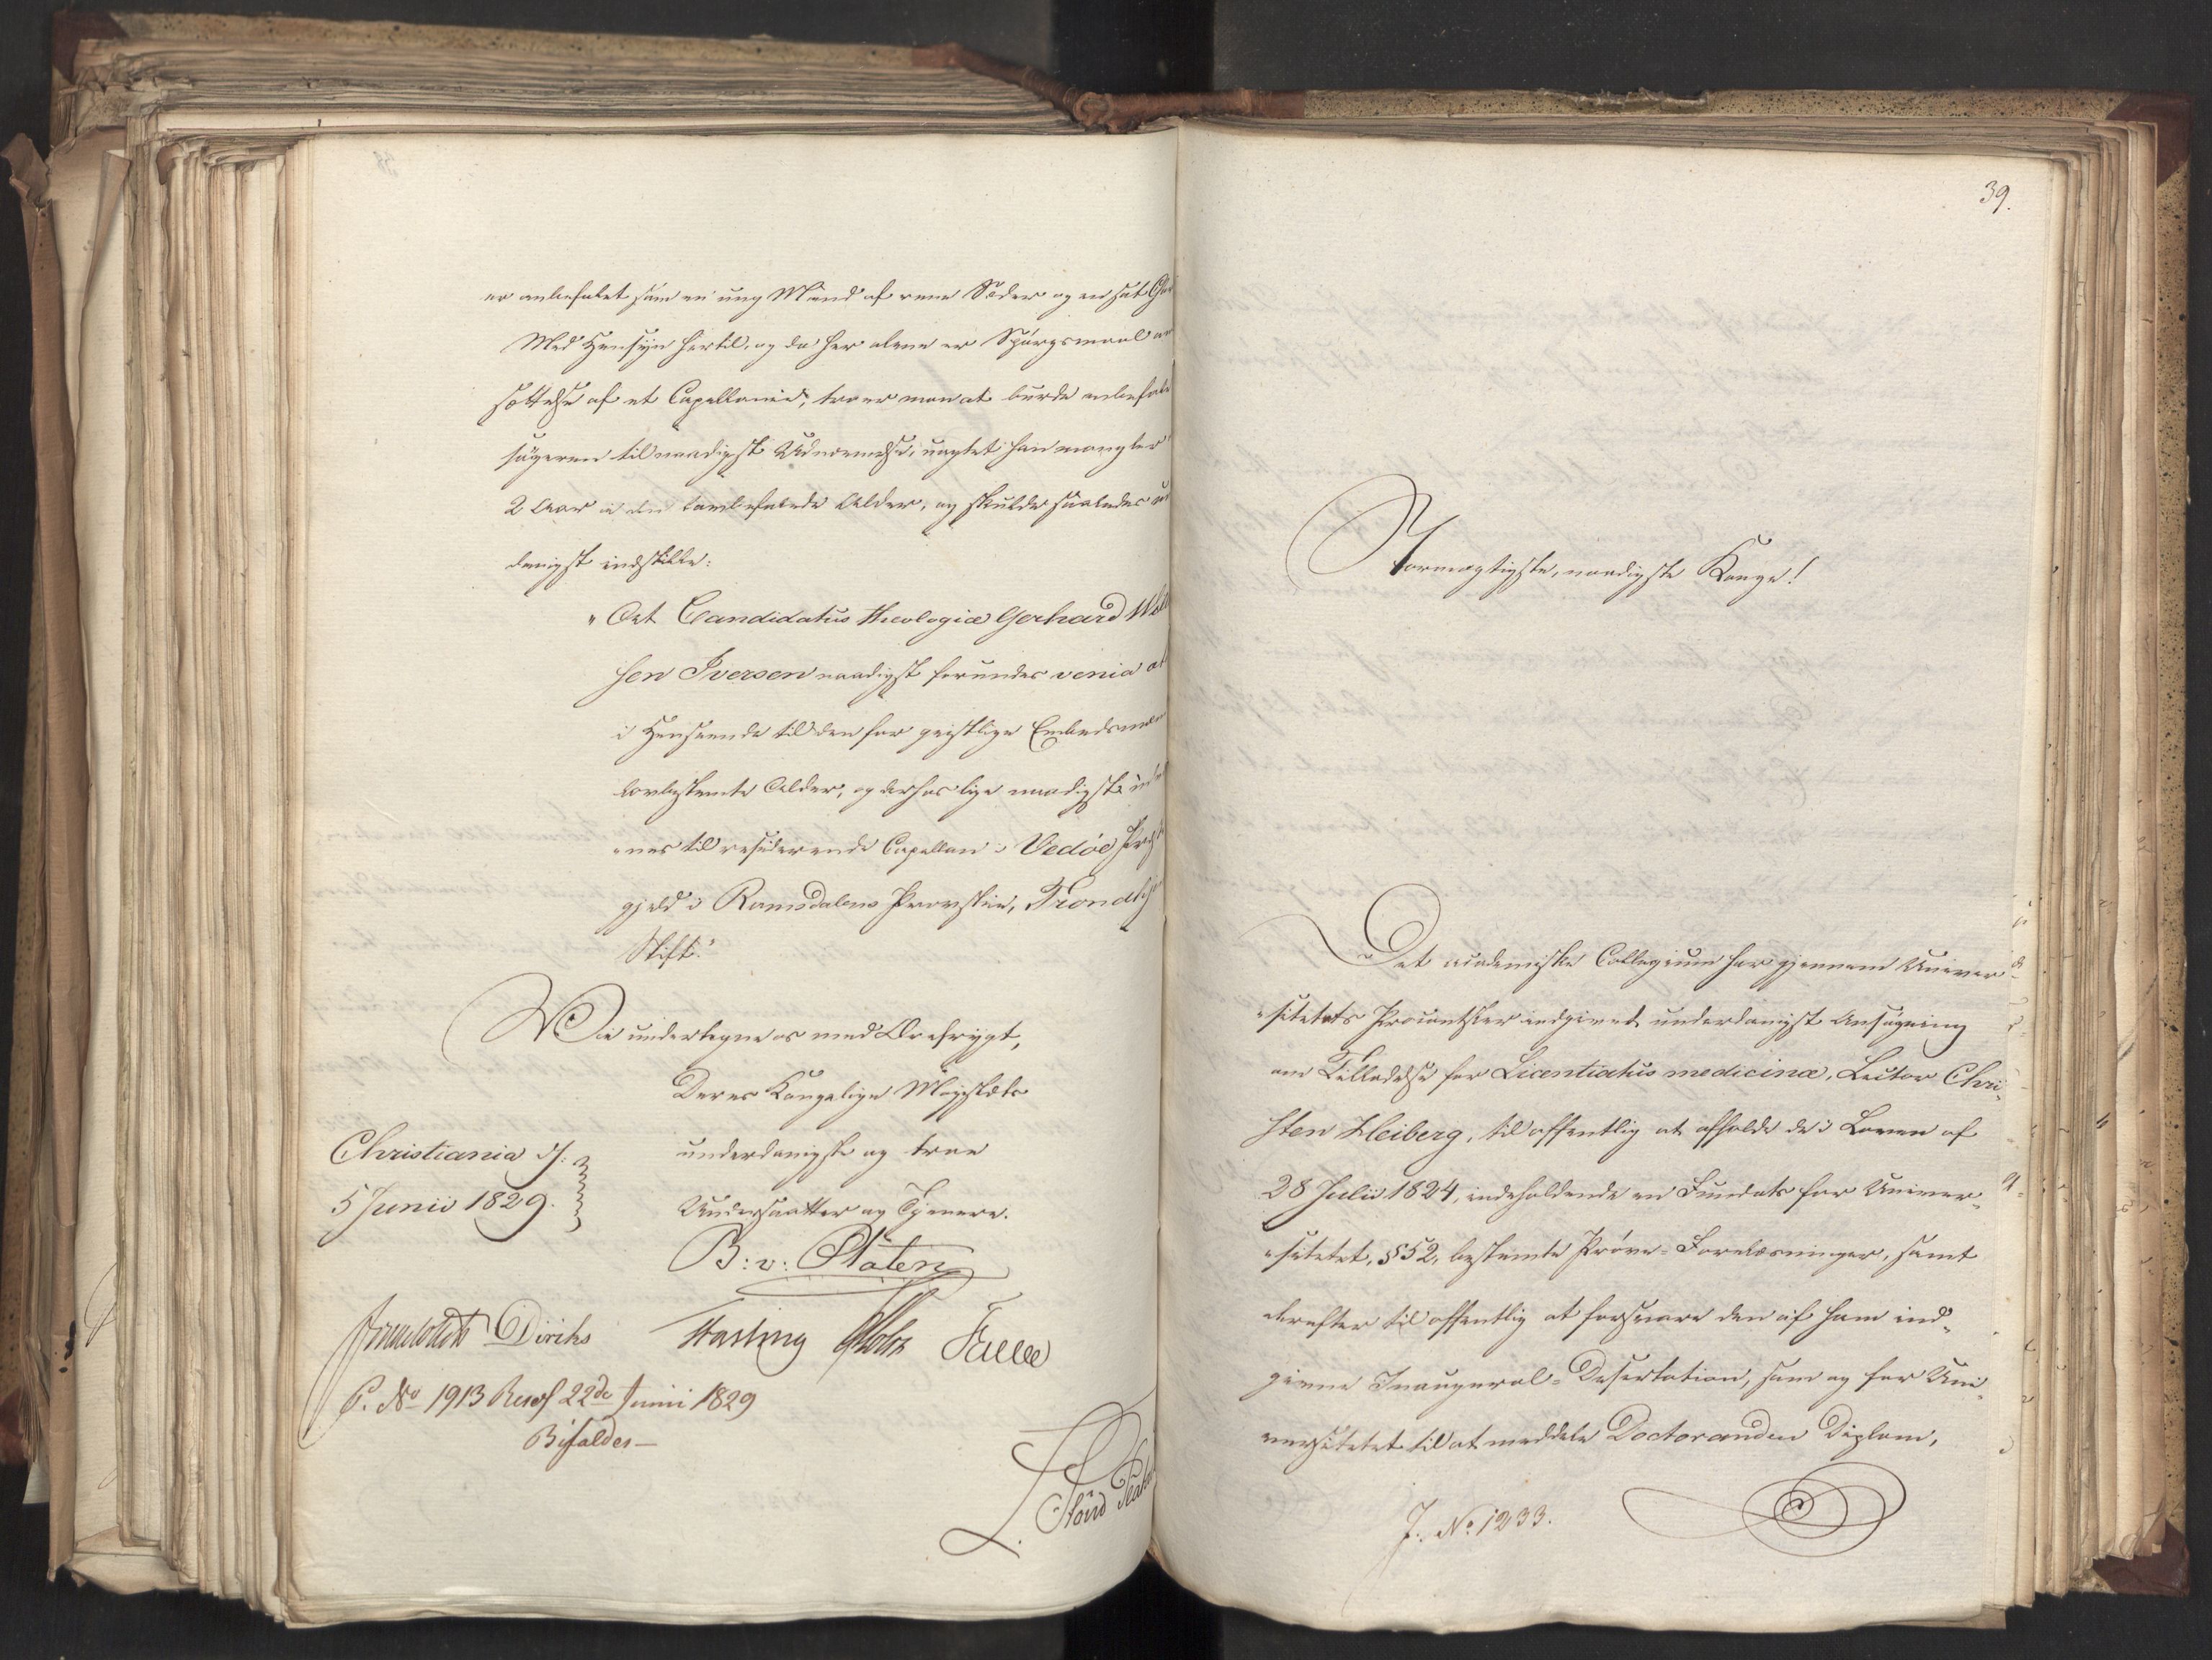 er anbefalet som en ung Mand af rene Sæder og en sat
Med Hensyn hertil, og da her alene er Spörgsmaal
sættelse af et Capellanie, troer man at burde anbefale
søgeren til naadigst Udnævnelse, uagtet han mangler
2 Aar i den lovbefalede Alder, og skulde saaledes
danigst indstille:
"At Candidatus theologiæ Gerhard
sen Iversen naadigst forundes venia
i Henseende til den for geistlige
lovbestemte Alder, og derhos lige naadigst
-nes til residerende Capellan i Vedøe
gjeld i Romsdalens Provstie,
Stift."
Vi undertegne os med Ærefrygt,
Deres Kongelige Majestæts
underdanigste og troe
Undersaatter og Tjenere.
Christiania d:
5 Junii 1829.
B: v: Platen
Diriks Fasting Holst Falbe
P. No 1913 Resol 22de Junii 1829
Bifaldes —
39.
Stormægtigste, naadigste Konge!
Det academiske Collegium har gjennem Univer-
-sitetets Procantsler indgivet underdanigst Ansøgning
om Tilladelse for Licentiatus medicinæ, Lector Chri-
sten Heiberg, til offentlig at afholde de i Loven af
28 Julii 1824, indeholdende en Fundats for Univer-
-sitetet, §52, bestemte Prøve-Forelæsninger, samt
derefter til offentlig at forsvare den af ham ind-
givne Inaugural-Disertation, som og for Uni-
versitetet til at meddele Doctoranden Diplom,
J. No 1233.